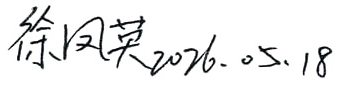 徐凤英2026.05.18